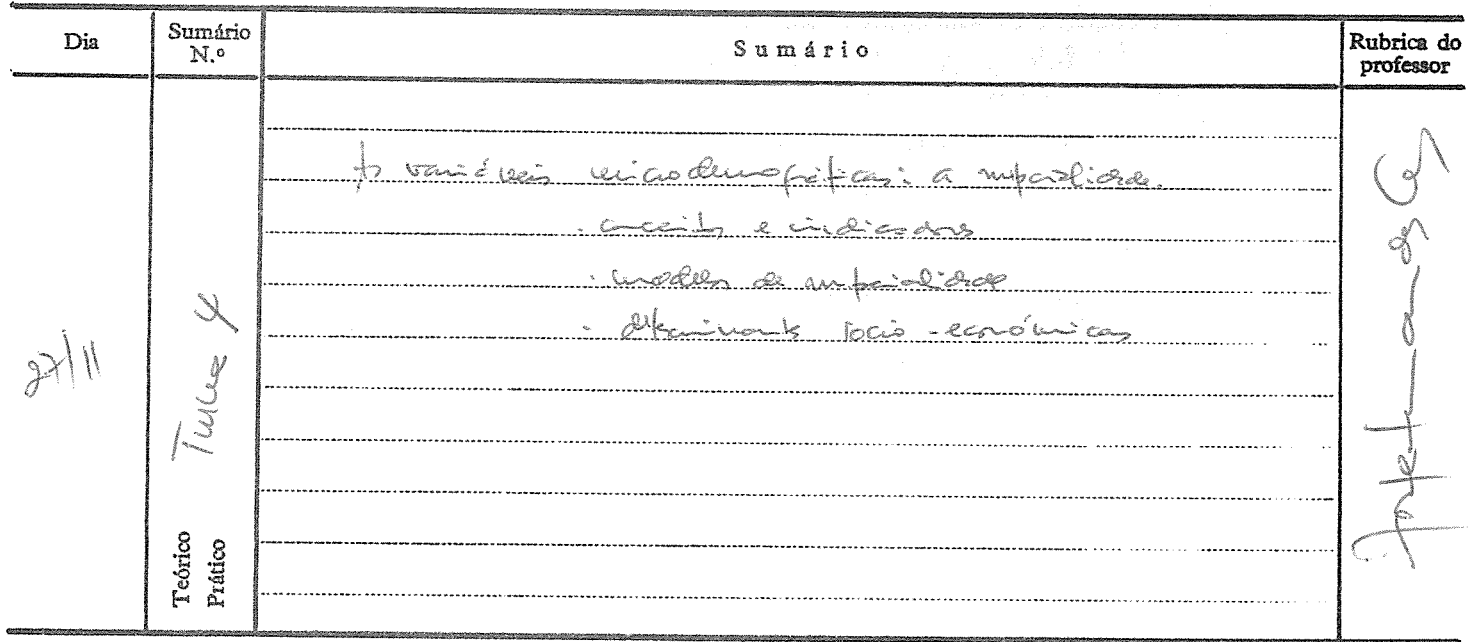 Dia
Sumário N.º
Sumário
Rubrica do professor
27/11
Turma 4
Teórico
Prático
As variáveis microdemográficas: a nupcialidade.
. conceitos e indicadores
. modelos de nupcialidade
. determinantes socio-económicas